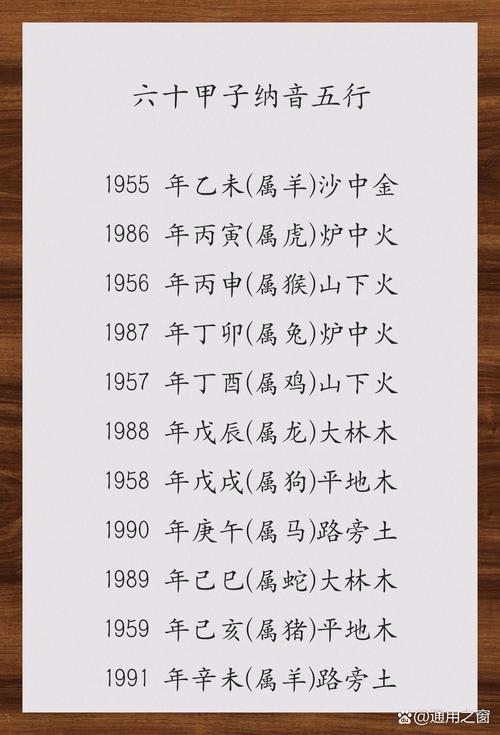 六十甲子纳音五行
1955 年乙未(属羊)沙中金
1986 年丙寅(属虎)炉中火
1956 年丙申(属猴)山下火
1987 年丁卯(属兔)炉中火
1957 年丁酉(属鸡)山下火
1988 年戊辰(属龙)大林木
1958 年戊戌(属狗)平地木
1990 年庚午(属马)路旁土
1989 年己巳(属蛇)大林木
1959 年己亥(属猪)平地木
1991 年辛未(属羊)路旁土
@通用之窗